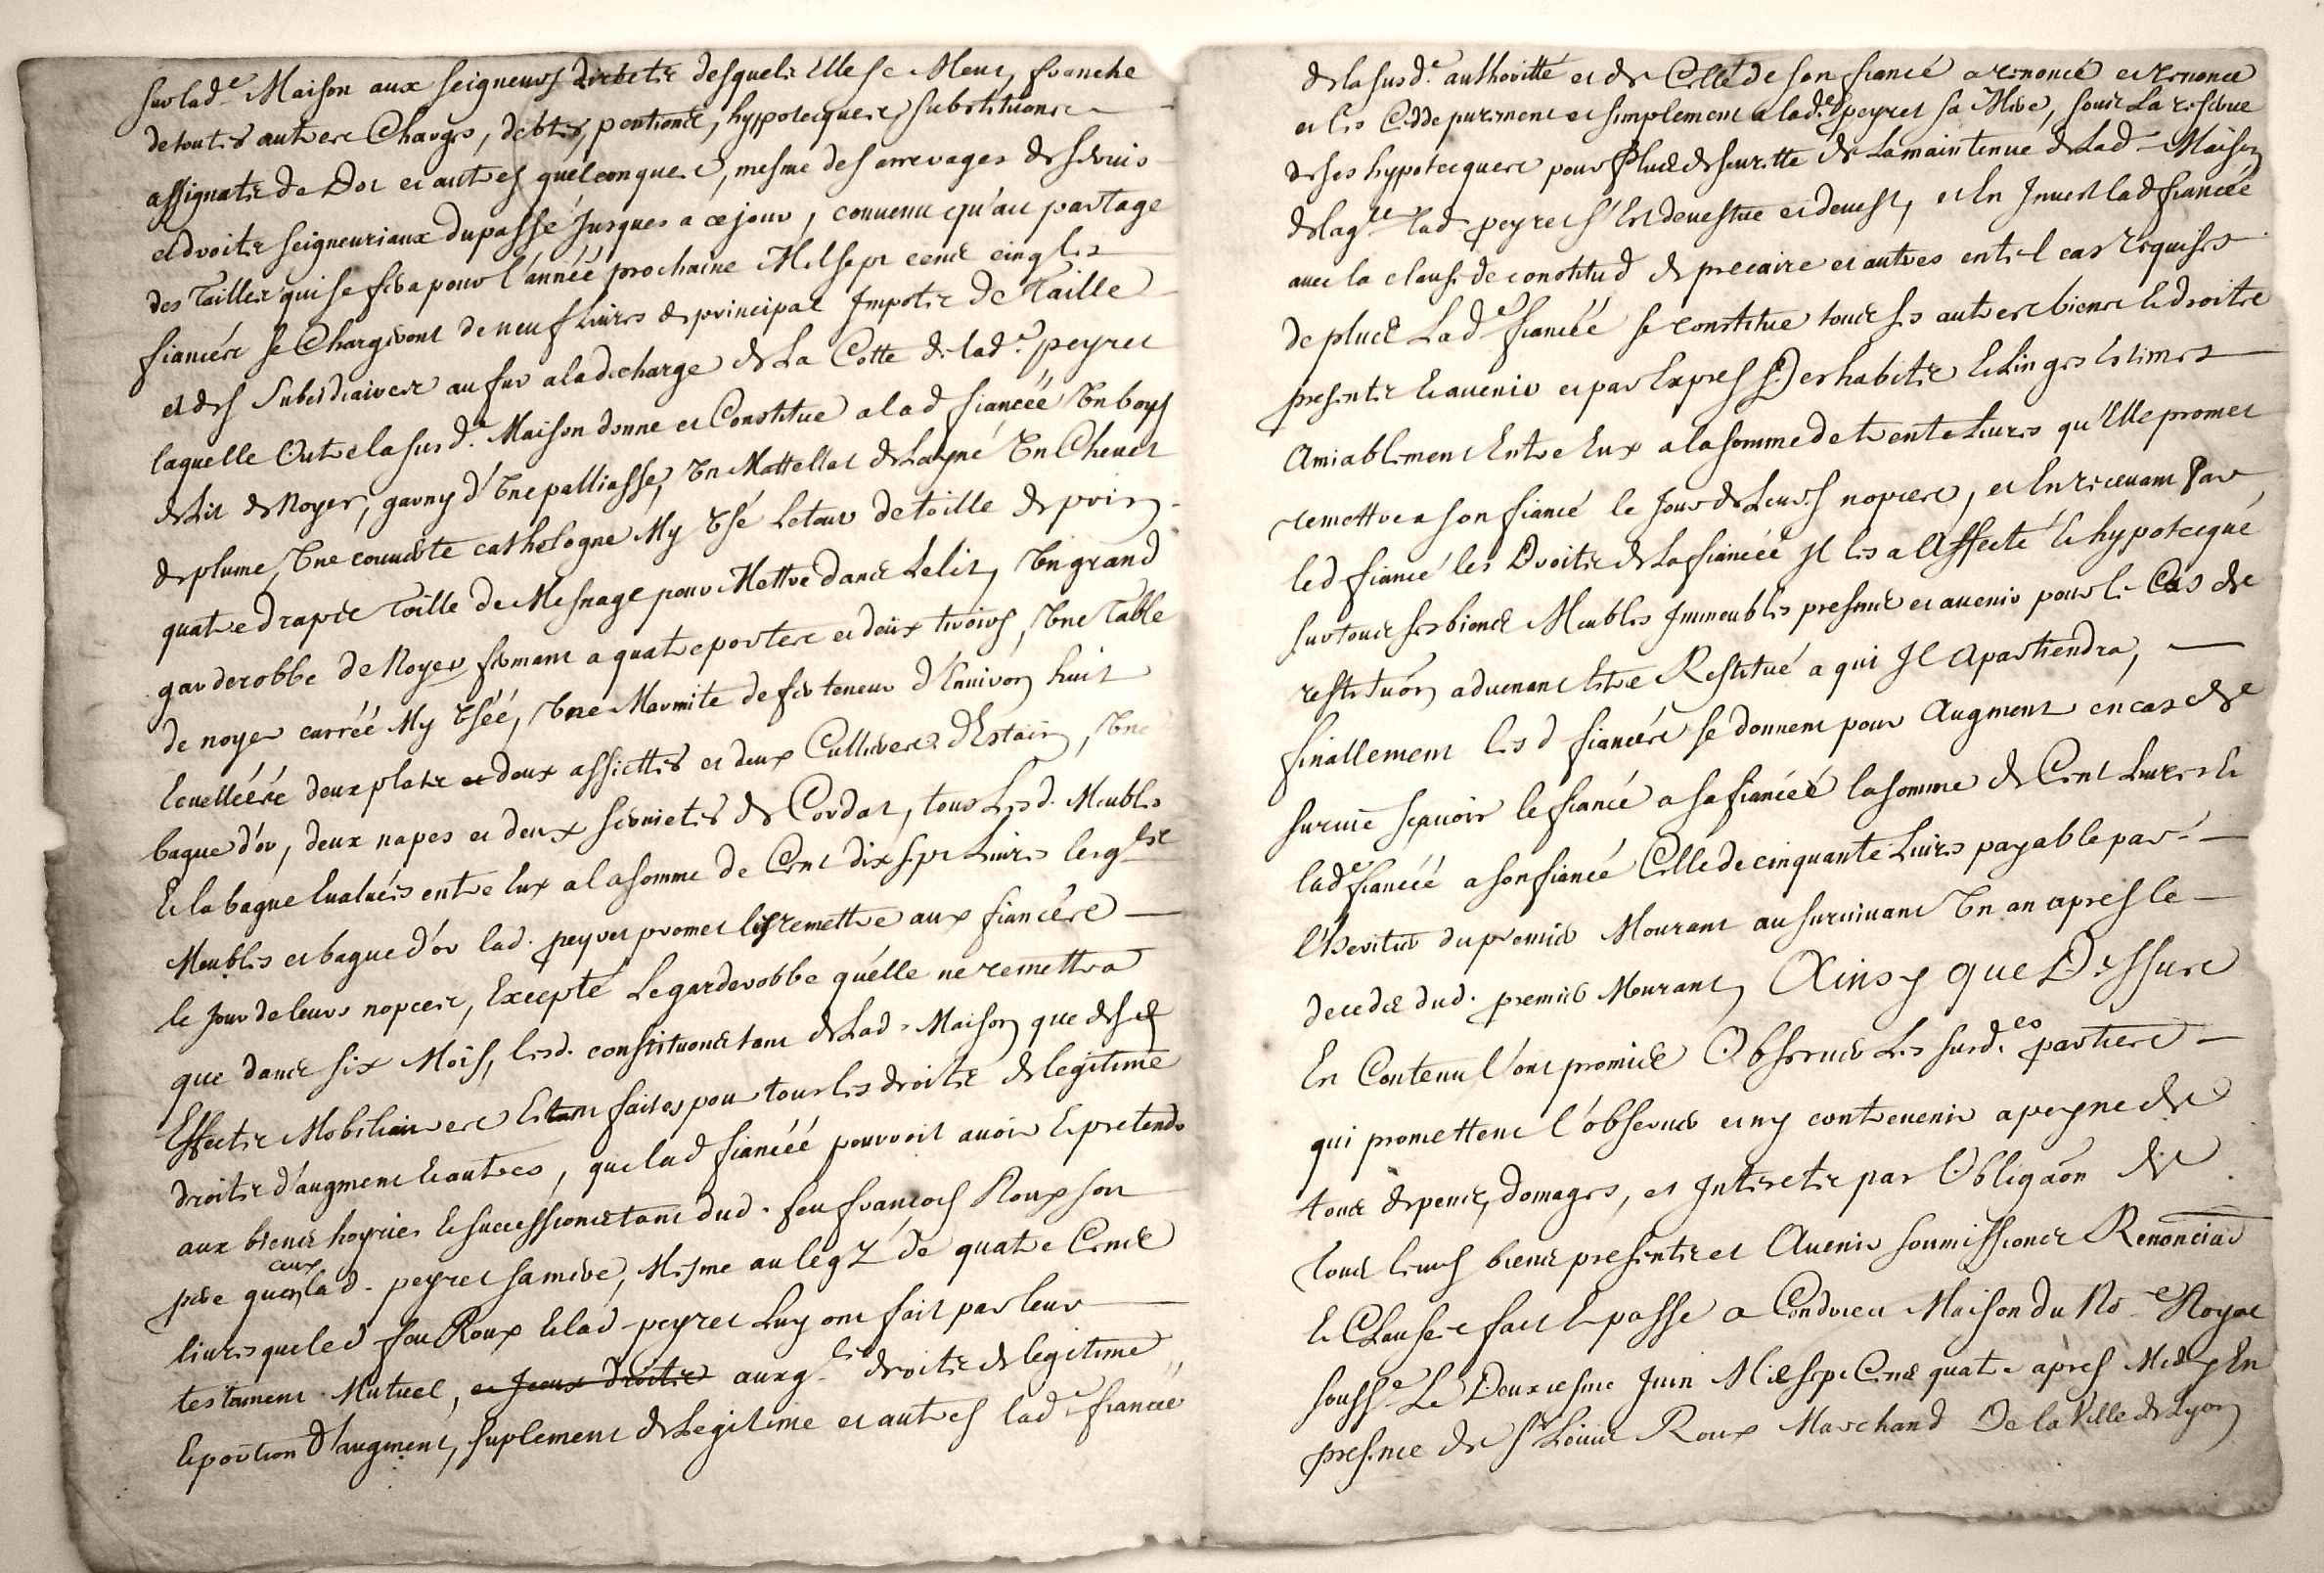 sur lad.e Maison aux seigneurs directz desquelz Elle se Meut, franche
de toutes autres Charges, debtes, pentions, hyppotecques, substitutions
assignatz de Dot et autres quelconques, mesme des arrerages de servis
et droitz seigneuriaux du passé Jusques a ce jour, convenu qu'au partage
des Tailles qui se fera pour l'année prochaine Mil sept cent cinq les
fiancés se Chargeront de neuf livres de principal Impotz de Taille
et des Subsidiaires au fur a la decharge de La Cotte de lad.e peyret
laquelle Outre la susd.e Maison donne et Constitue a lad fiancéé Un boys
de Lit de Noyer, garny d'Une palliasse, Un Mattellat de Layne Un Chevet
de plume, Une couverte cathelogne My Usé Le tour de toille de prin
quatre draps Toille de Mesnage pour Mettre dans Le lit, Un grand
garderobbe de Noyer fermant a quatre portes et deux tiroirs, Une Table
de noyer carréé My Uséé, Une Marmite de fer teneur d'Environ huit
Ecuelléés deux platz et deux assiettes et deux Cullieres d'Estain, Une
bague d'or, deux napes et deux serviettes de Cordat, tous Lesd. Meubles
Et la bague Evalués entre Eux a la somme de Cent dix sept Livres lesqls
Meubles et bague d'or lad. peyret promet les remettre aux fiancés
le Jour de leurs nopces, Excepté Le garderobbe qu'elle ne remettra
que dans six Mois, lesd. constitutions tant de Lad. Maison que desd
Effectz Mobiliaires Etant faites pour tous les droitz de legitime
droitz d'augment Et autres, que lad fiancéé pourroit avoir Et pretendre
aux biens hoyries Et successions tant dud. feu francois Roux son
pere qu'en aux lad. peyret sa mere, Mesme au legz de quatre Cents
livres que led feu Roux Et lad peyret Luy ont fait par leur
testament Mutuel, et Iceux droitz auxqls droitz de legitime
Et portion d'augment, suplement de Legitime et autres lad.e fiancéé
de la susd.e authoritté et de Celle de son fiancé a renoncé et renonce
et les Cedde purement et simplement a lad.e peyret sa Mere, sous La reserve
de ses hypotecques pour Plus de seuretté de La maintenue de Lad. Maison
de laqlle lad. peyret s'Est devestue et devest, et En Jnvest lad fiancéé
avec la clause de constitud de precaire et autres en tel cas requises
de plus Lad.e fiancéé se constitue tous ses autres biens Et droitz
presentz Et avenir et par Expres ses habitz Et Linges Estimes
Amiablement Entre Eux a la somme de trente Livres qu'Elle promet
remettre a son fiancé le Jour de Leurs nopces, et En recevant Par
led fiancé les Droitz de La fiancéé Jl les a Affecté Et hypotecqué
sur tous ses biens Meubles Jmmeubles presents et avenir pour Le Cas de
restituon advenant Estre Restitué a qui Jl Apartiendra,
finallement lesd fiancés se donnent pour Augment en cas de
survie sçavoir le fiancé a sa fiancéé la somme de Cent Livres Et
lad.e fiancéé a son fiancé Celle de cinquante Livres payable par
l'heritier du premier Mourant au survivant Un an apres le
deceds dud. premier Mourant, Ainsy que Dessus
Est Contenu l'ont promis Observer Les susd.es parties
qui promettent l'observer et ny contrevenir a peyne de
tous depens, domages, et Jnteretz par Obligaon de
Tous leurs biens presentz et Avenir soumissions Renonciaõ
Et Clauses fait Et passé a Condrieu Maison du No.re Royal
soussé Le Deuxiesme Juin Mil sept Cent quatre après Midy En
presence de Sr Louis Roux Marchand De la Ville de Lyon